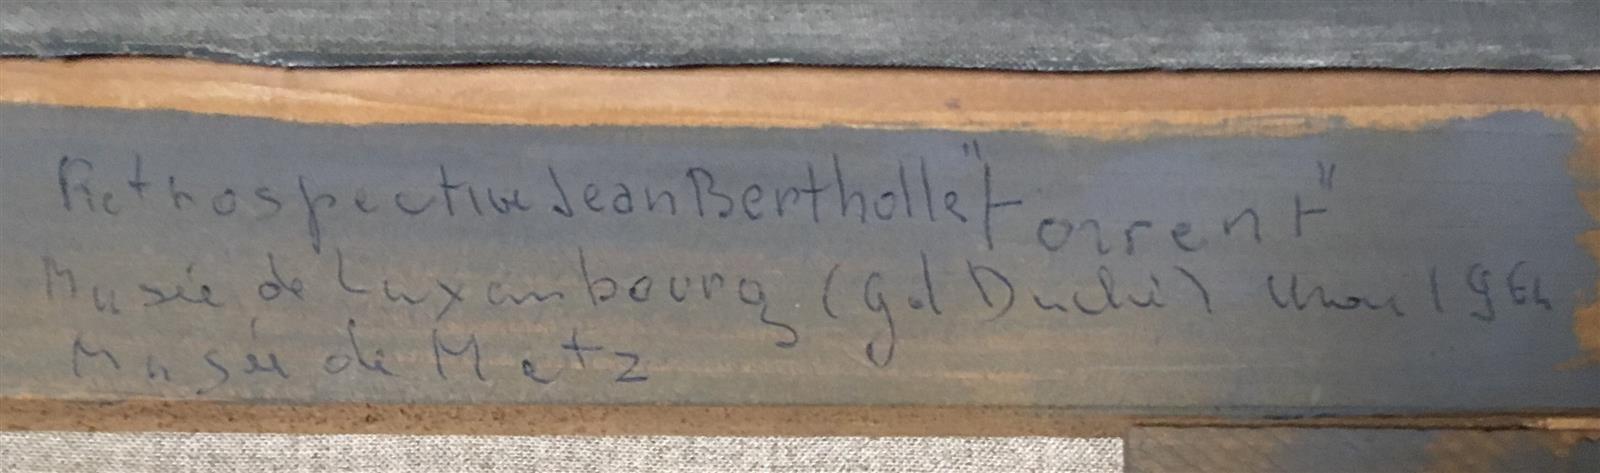 Retrospective Jean Bertholle "Torrent"
Musée de Luxembourg (Gd Duché) 1964
Musée de Metz